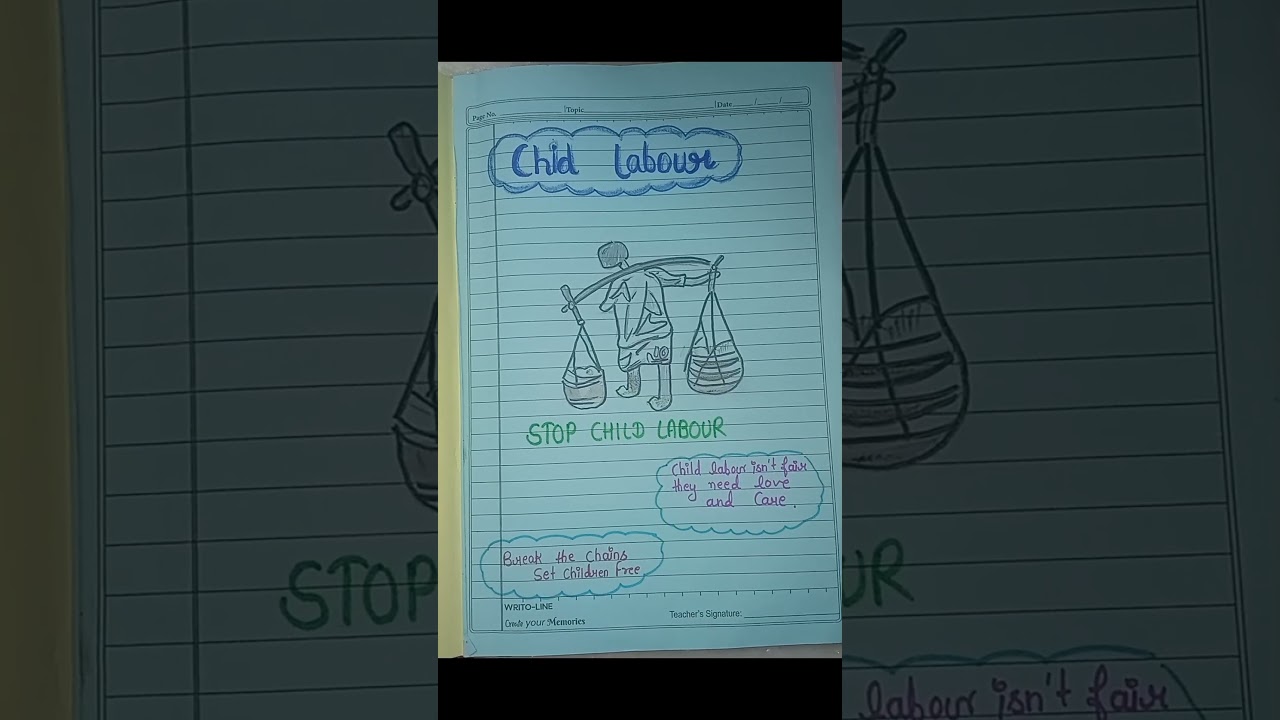 Page No.
Topic
Date
Chid Labour
STOP CHILD LABOUR
Child labour isn't fair
they need love
and Care.
Break the Chains
Set Children Free
WRITO-LINE
Create your Memories
Teacher's Signature:
STOP
UR
labour isn't fair